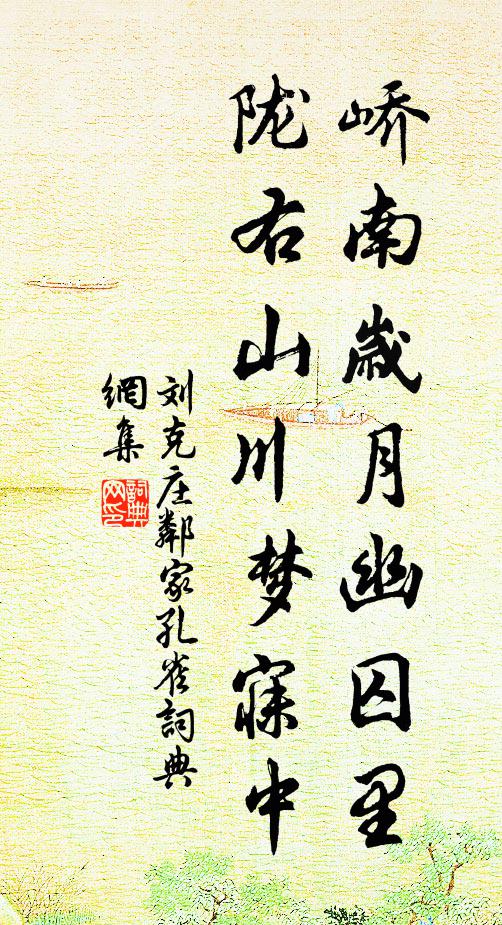 峤南歳月幽囚里
陇右山川梦寐中
刘克庄鄰家孔雀詞典
網集
詞典
网印